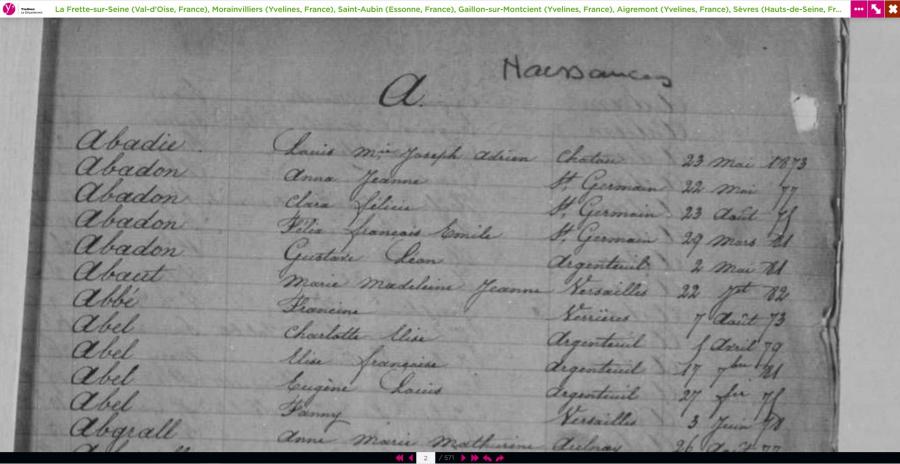 Yvelines
La Frette-sur-Seine (Val-d'Oise, France), Morainvilliers (Yvelines, France), Saint-Aubin (Essonne, France), Gaillon-sur-Montcient (Yvelines, France), Aigremont (Yvelines, France), Sèvres (Hauts-de-Seine, Fr...
Naissances
A.
Abadie Louis Mie Joseph Adrien Chatou 23 Mai 1873
Abadon Anna Jeanne St Germain 22 Mai 77
Abadon Clara Félicie St Germain 23 Août
Abadon Félix François Emile St Germain 29 Mars 81
Abadon Gustave Léon Argenteuil 2 Mai 81
Abaut Marie Madeleine Jeanne Versailles 22 Jet 82
Abbé Francine Verrières 7 Août 73
Abel Charlotte Elise Argenteuil Avril 79
Abel Elise Françoise Argenteuil 17 7bre 81
Abel Eugène Louis Argenteuil 27
Abel Fanny Versailles 3 Juin 78
Abgrall Anne Marie Mathurine Aulnay 26 Août 77
2 / 571